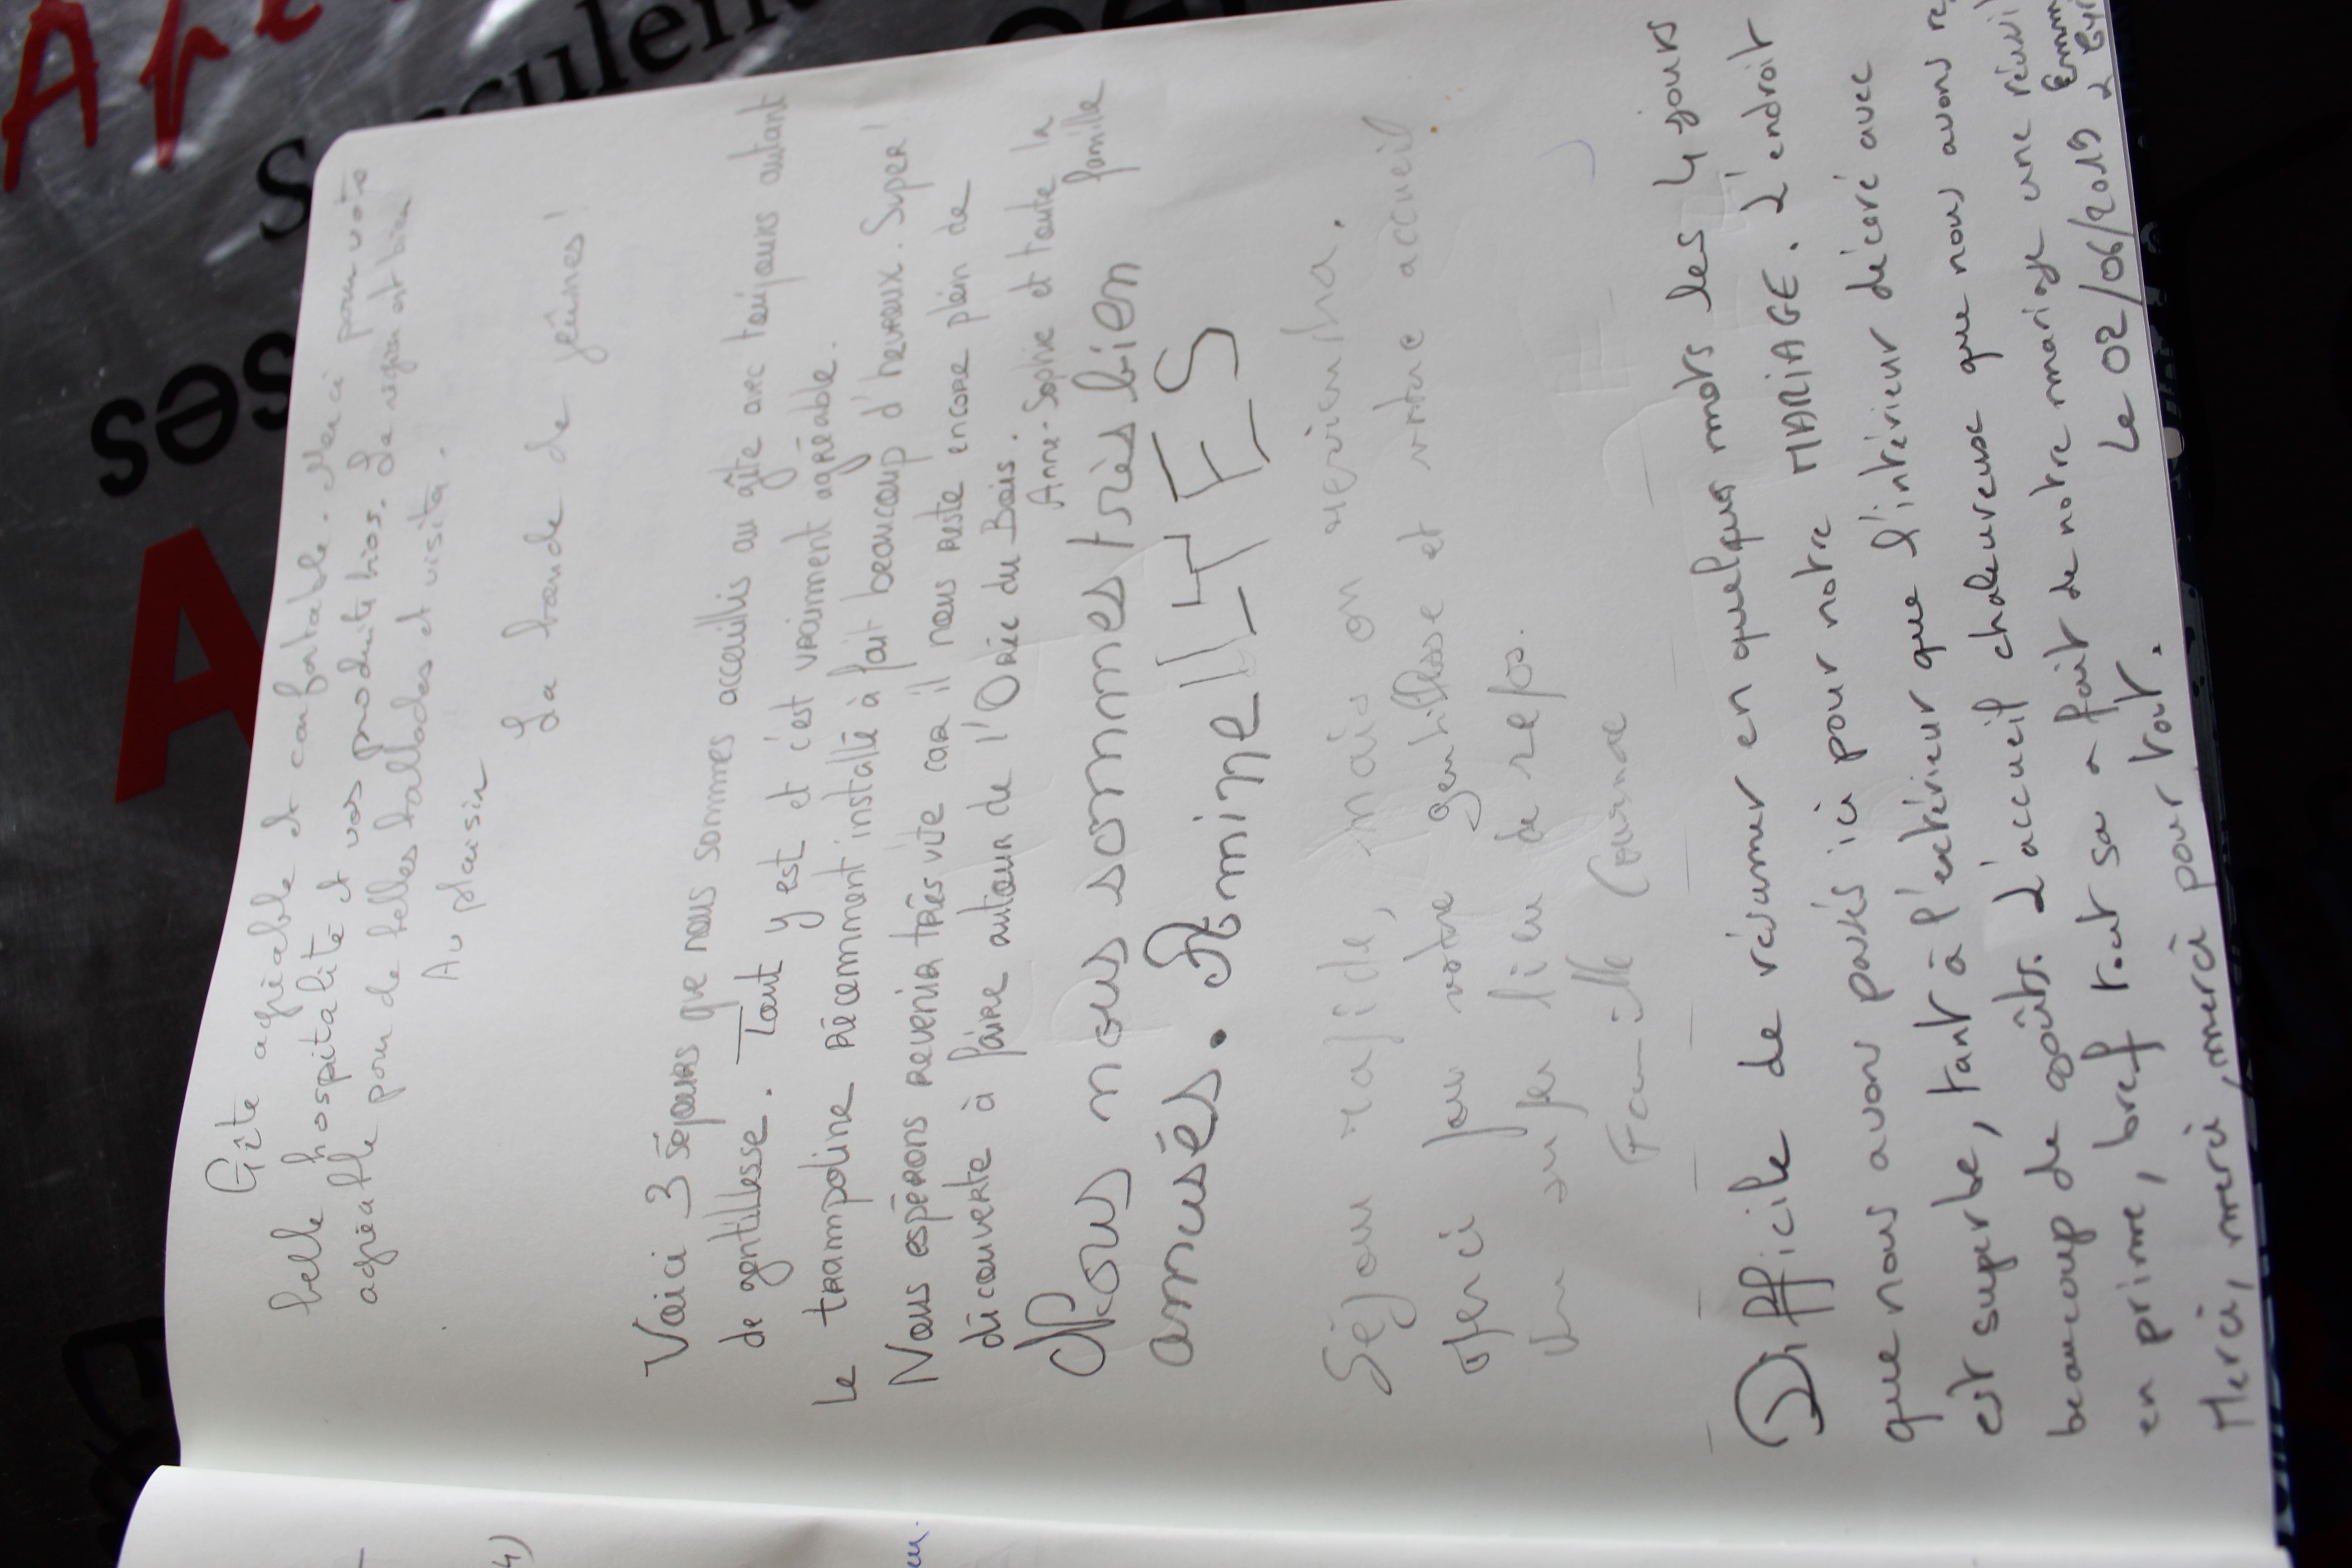 Gîte agréable et confortable. Merci pour votre
belle hospitalité et vos produits bios. La région est bien
agréable pour de belles ballades et visites.
Au plaisir
La bande de jeunes!
Voici 3 séjours que nous sommes accueillis au gîte avec toujours autant
de gentillesse. Tout y est et c'est vraiment agréable.
Le trampoline récemment installé à fait beaucoup d'heureux. Super!
Nous espérons revenir très vite car il nous reste encore plein de
découverte à faire autour de l'Orée du Bois.
Anne-Sophie et toute la
famille
Nous nous sommes très bien
amusés.
Séjour rapide, mais on reviendra.
Merci pour votre gentillesse et votre accueil
Un super lieu de repos.
Famille
Difficile de résumer en quelques mots les 4 jours
que nous avons passés ici pour notre MARIAGE. L'endroit
est superbe, tant à l'extérieur que l'intérieur décoré avec
beaucoup de goûts. L'accueil chaleureuse que nous avons
en prime, bref tout sa a fait de notre mariage une
Merci, merci, merci pour tout.
Le 02/06/2019
Ap
ses
A
4)